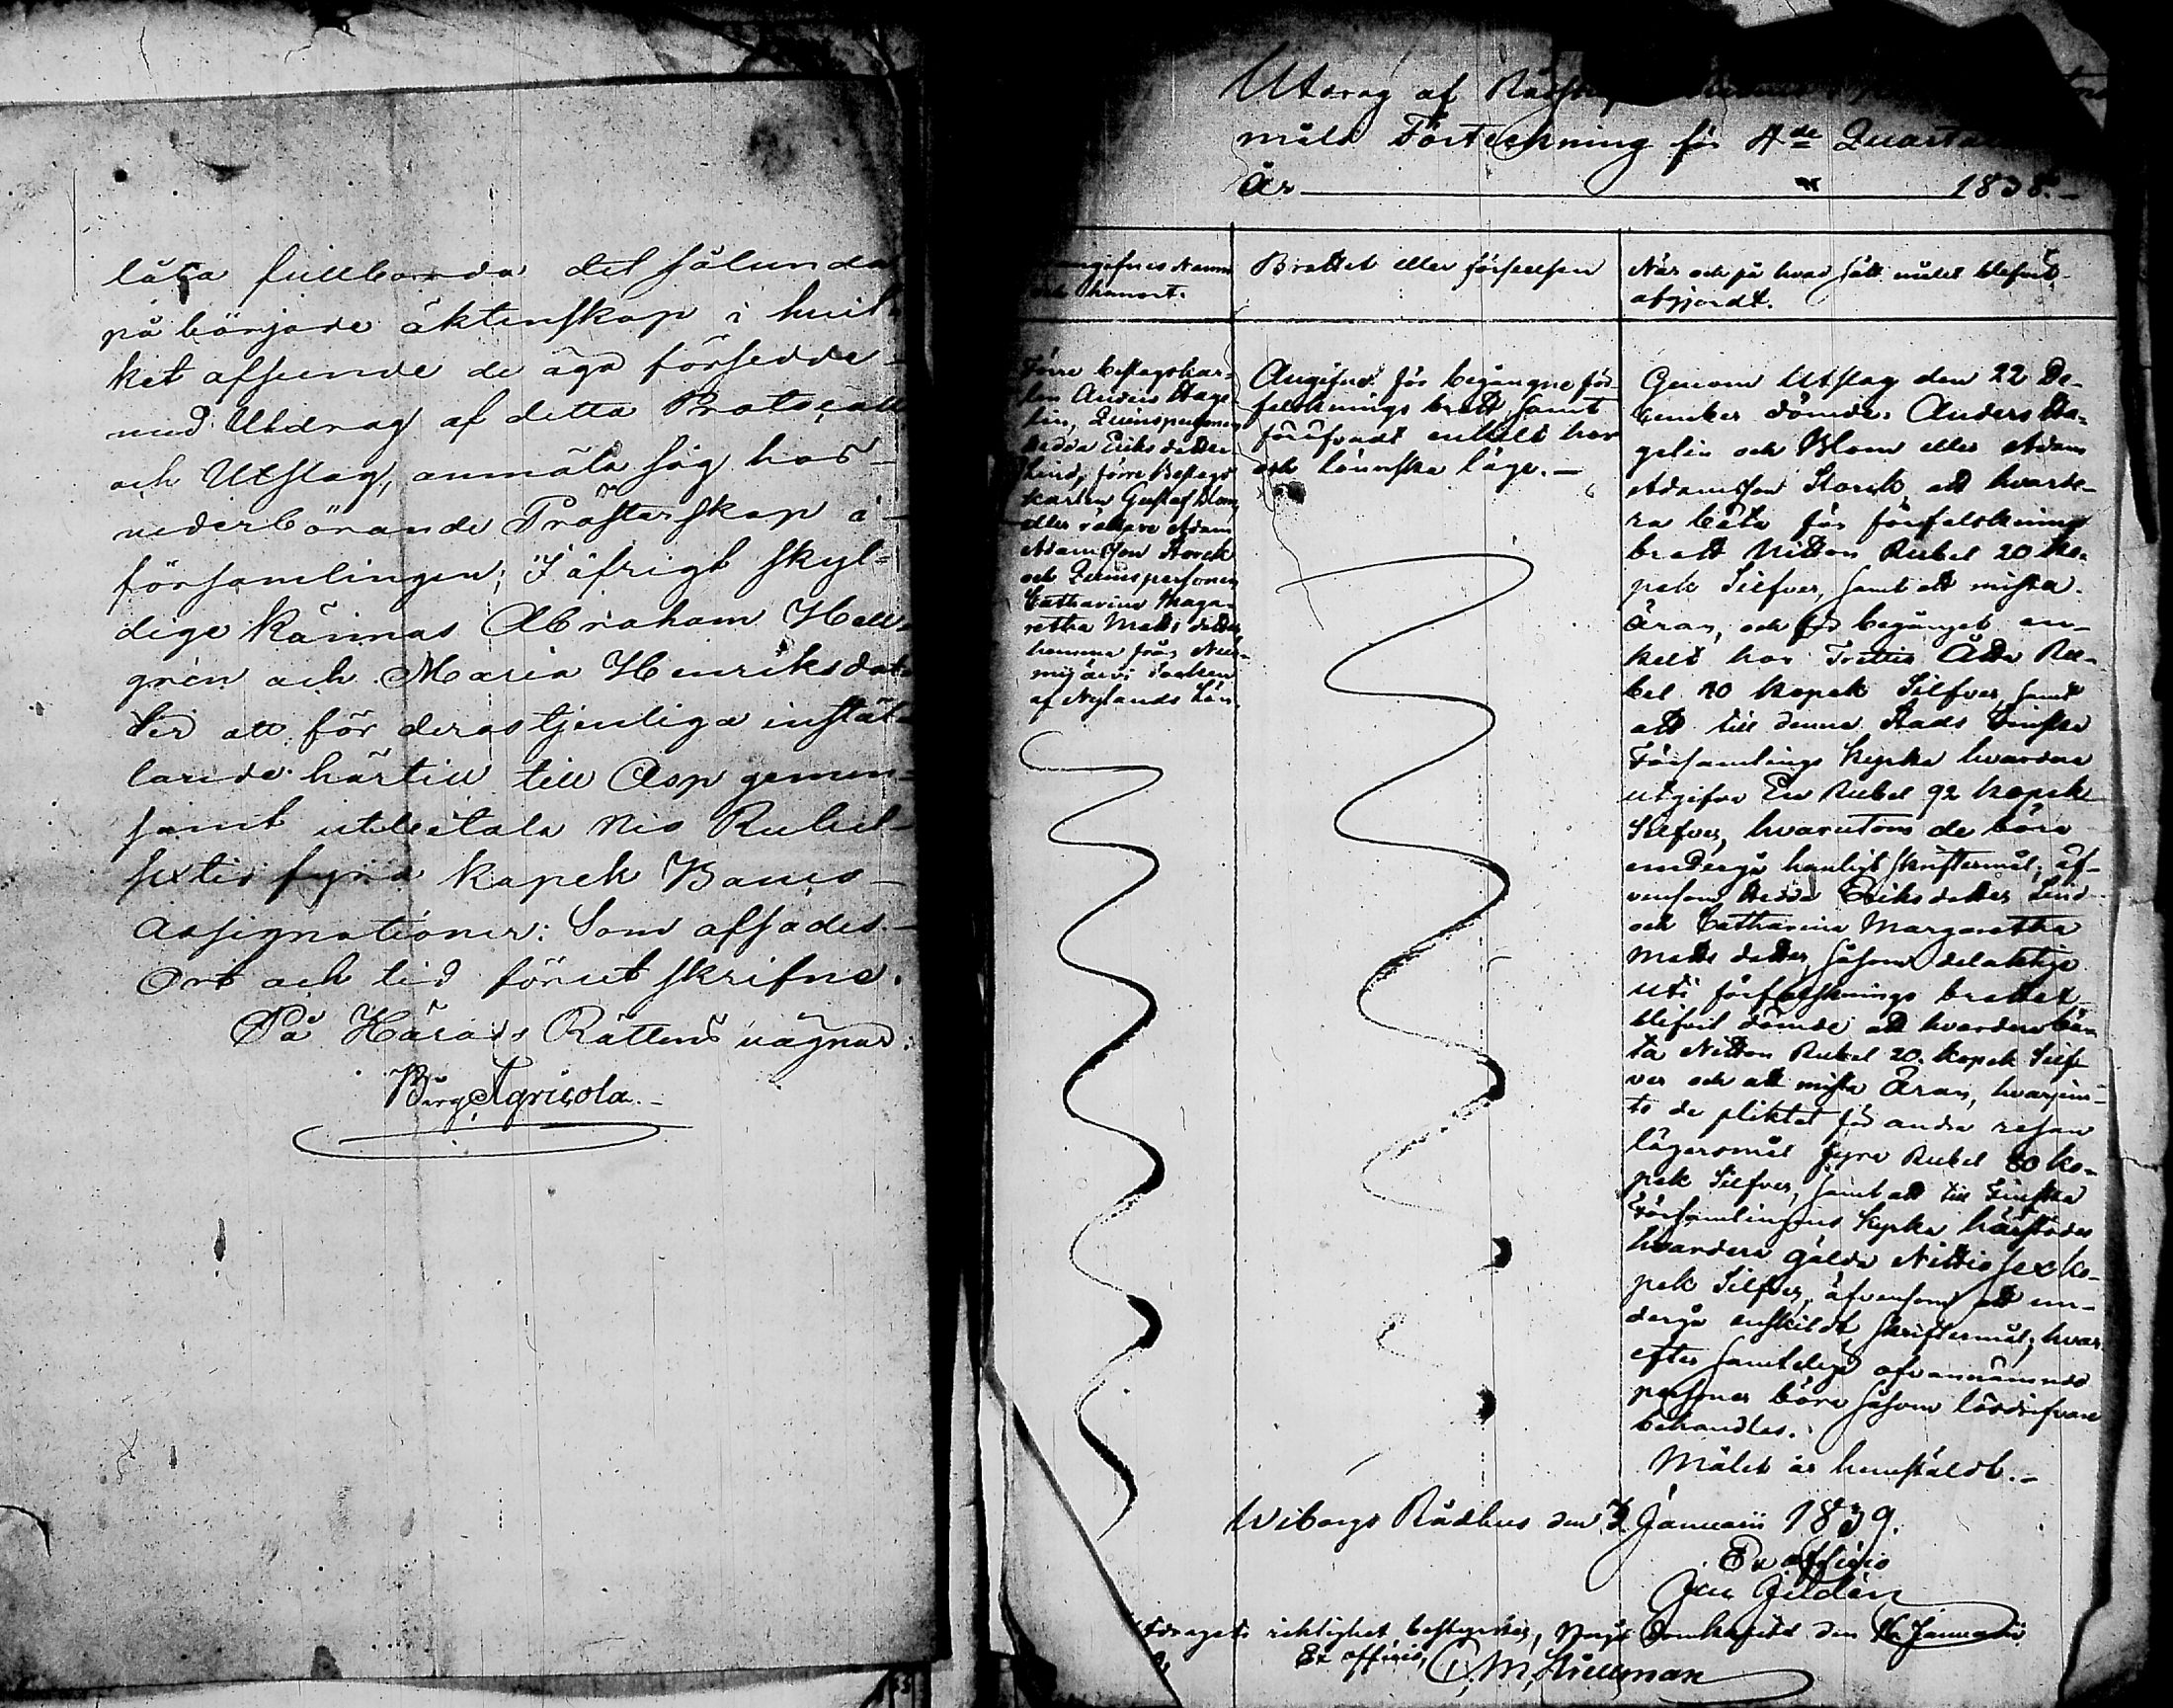 låta fullborda det sålunda
påbörjade äktenskap i hvil-
ket afseende de äga försedde
med Utdrag af detta Protocoll
och Utslag, anmäla sig hos
vederbörande Prästerskap i
församlingen; I öfrigt skyl-
dige kännas Abraham Hell-
grén och Maria Henriksdot-
ter att för deras tjenliga instäl-
lande härtill till Asp gemen-
samt utbetala Nio Rubel
sextio fyra kopek Banco
Assignationer: Som afsades.
Ort och tid förut skrifne.
På Härads Rättens vägnar:
Berg Agricola.
Utdrag af
måls Förteckning för 4de Quartalet
År 1838.
gifnes Namn Brottet eller förseelsen När och på hvad sätt målet blifvit
och hemort. afgjordt.
Förre betlagskar-
len Anders Hage-
lin, Qvinspersonen
Hedda Eriksdotter
Lind, förre Beslags
karlen Gustaf Blom
eller rättare Adam
Adamsson Storck
och Qvinspersonen
Catharina Marga-
retha Matts dotter,
hemma från Nur-
mijärvi Socken
af Nylands Län.
Angifne för begångne för-
falsknings brott samt
föröfvadt enkelt hor
och lönnska läge.
Genom Utslag den 22 De-
cember dömdes Anders Ha-
gelin och Blom eller Adam
Adamsson Storck, att hvarde-
ra böta för förfalsknings
brott Nitton Rubel 20 Ko-
pek Silfver, samt att mista
äran, och för begånget en-
kelt hor Trettio Åtta Ru-
bel 40 Kopek Silfver samt
att till denne Stads Finska
Församlings Kyrka hvardera
utgifva En Rubel 92 kopek
Silfver, hvarutom de böra
undergå hemligt skriftermål; äf-
vensom Hedda Eriksdotter Lind
och Catharina Margaretha
Matts dotter, såsom delaktige
uti förfalsknings brottet
blifvit dömde att hvardera bö-
ta Nitton Rubel 20 Kopek Silf-
ver och att mista äran, hvarjem-
te de pliktat för andra resan
lägersmål fyra Rubel 80 ko-
pek Silfver, samt att till Finska
Församlingens Kyrka härstädes
hvardera gälda Nittiosex Ko-
pek Silfver, äfvensom att un-
dergå enskildt skriftermål; hvar-
efter samtelige ofvannämnde
personer böra såsom lösdrifvare
behandlas.
Målet är hemstäldt.
Wiborgs Rådhus den 2 Januarii 1839.
Ex officio
Utdragets riktighet bestyrkes, Borgå Domkapitel den Januarii
Ex officio,